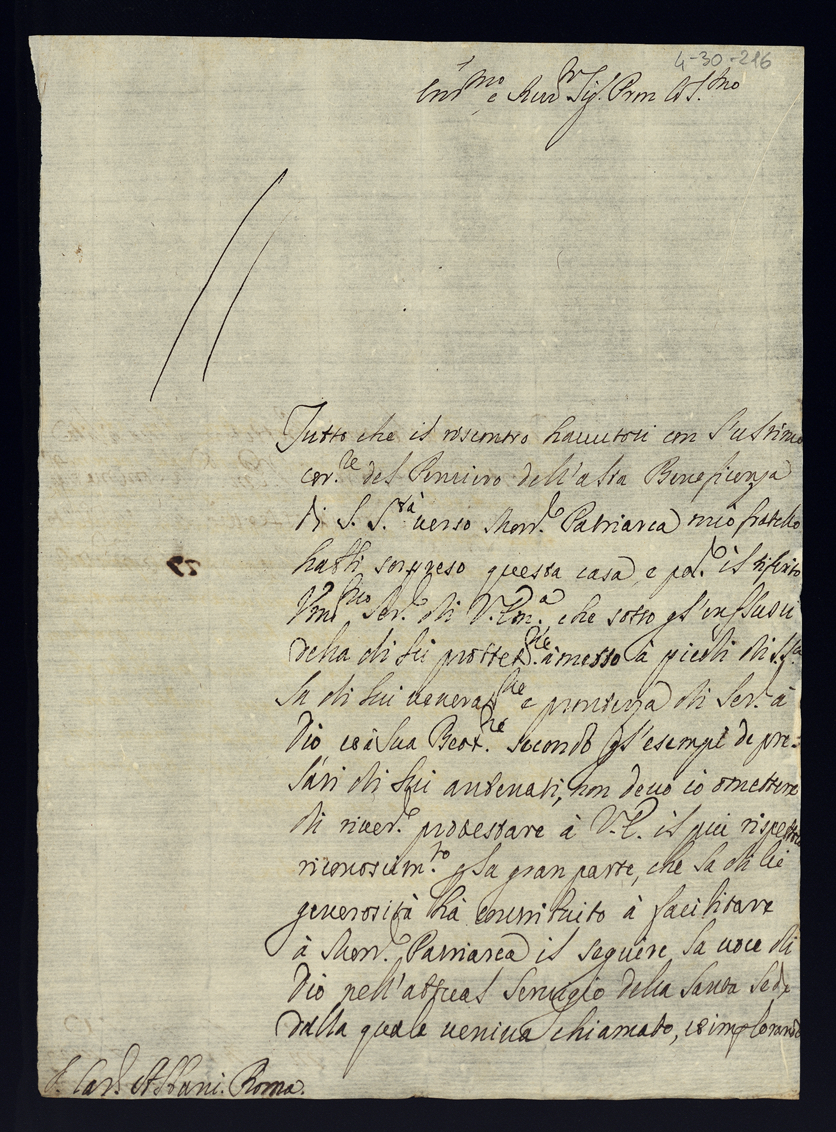 4-30-296
Em.mo e Rev. Sig. Pron Col.mo
Tutto che il riscontro havutosi con l'ultimo
cor.re del Pensiero dell'alta Beneficenza
di S. S.tà verso Mons.r Patriarca mio fratello
habbi sorpreso questa casa, e
Um.mo Ser.e di V. Em.a che sotto gl'influssi
della di lei prottet.ne à piedi di
la di lei venerat.ne e prontezza di Ser.e à
Dio et à Sua Beat.ne secondo gl'esempi de pre-
lati di lui antenati, non devo io omettere
di river.te protestare à V. E. il più
riconoscim.to p la gran parte, che la di lei
generosità hà contribuito à facilitare
à Mons.r Patriarca il seguire la voce di
Dio nell'attual Servigio della Santa Sede
dalla quale veniva chiamato, et implorando
S. Card. Albani. Roma.